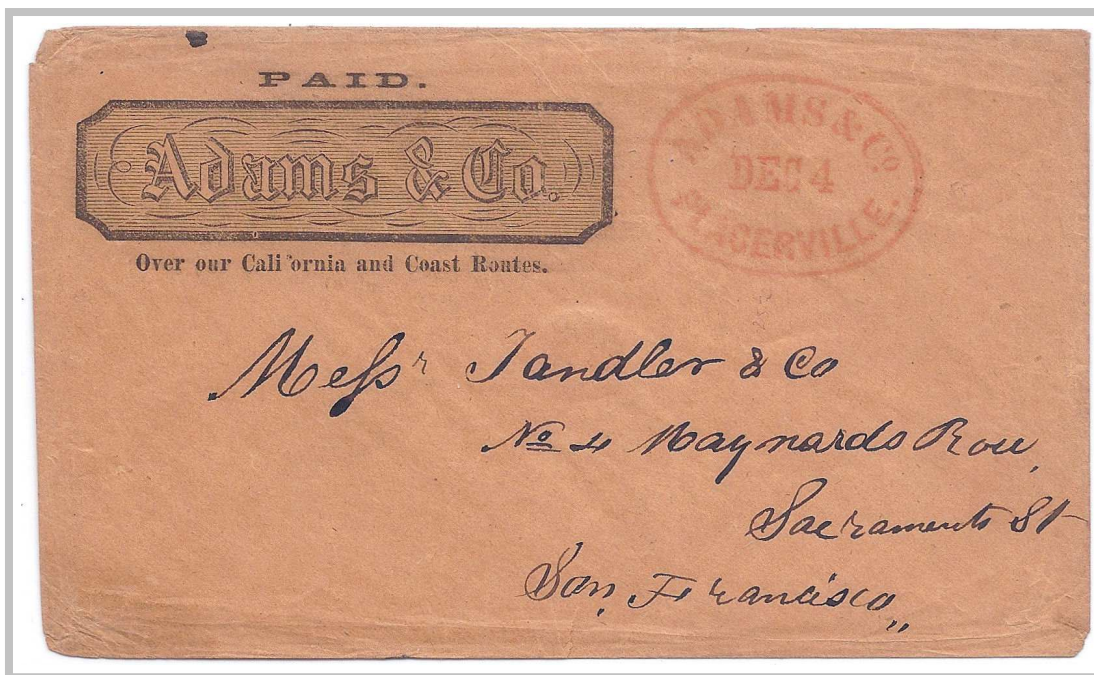 PAID.
Adams & Co.
Over our Cali ornia and Coast Routes.
ADAMS & Co.
DEC 4
PLACERVILLE.
Messr Tandler & Co
No 4 Maynards Row,
Sacramento St
San, Francisco,,